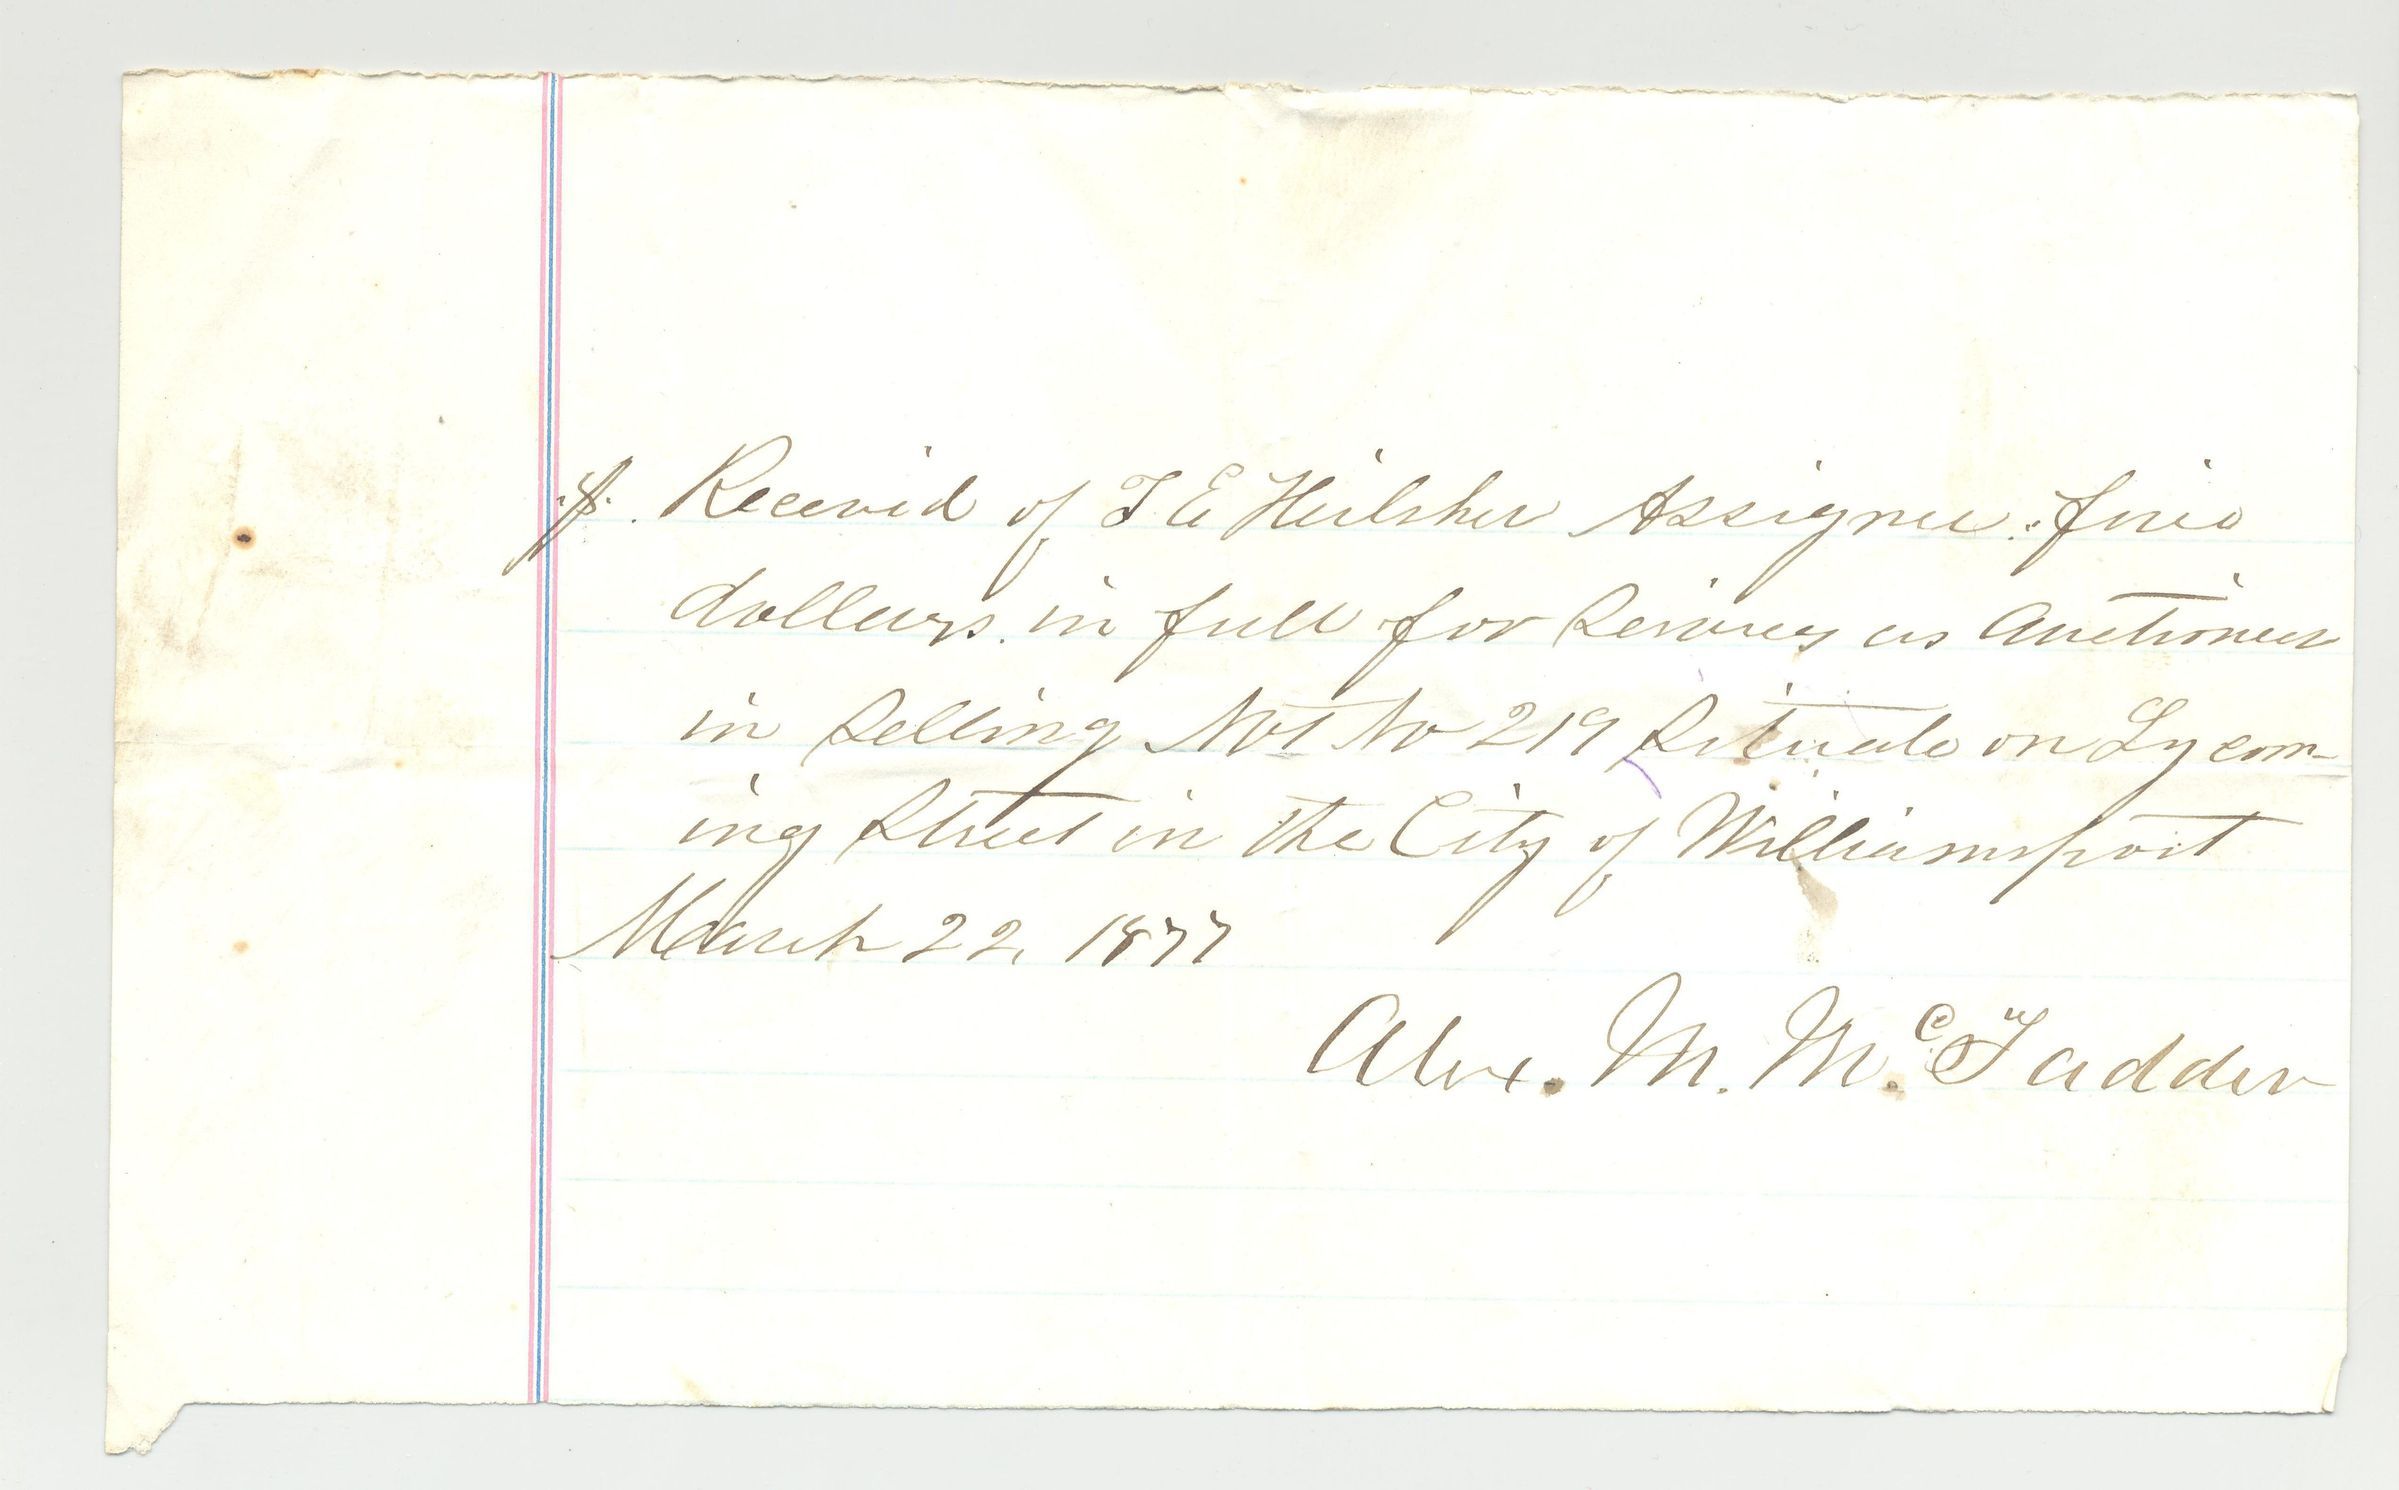 $5. Received of T E Heilsher Assignee five
dollars in full for Services as Auctioneer
in Selling Lot No 219 Situate on Lycom-
ing Street in the City of Williamsport
March 22, 1877
Alex. M. McFadden